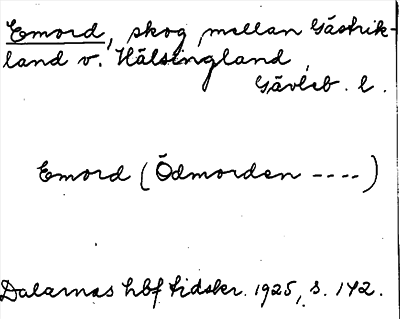 Emord, skog mellan Gästrik-
land o. Hälsingland,
Gävleb. l.
Emord (Ödmorden ----)
Dalarnas hbf tidskr. 1925, s. 142.